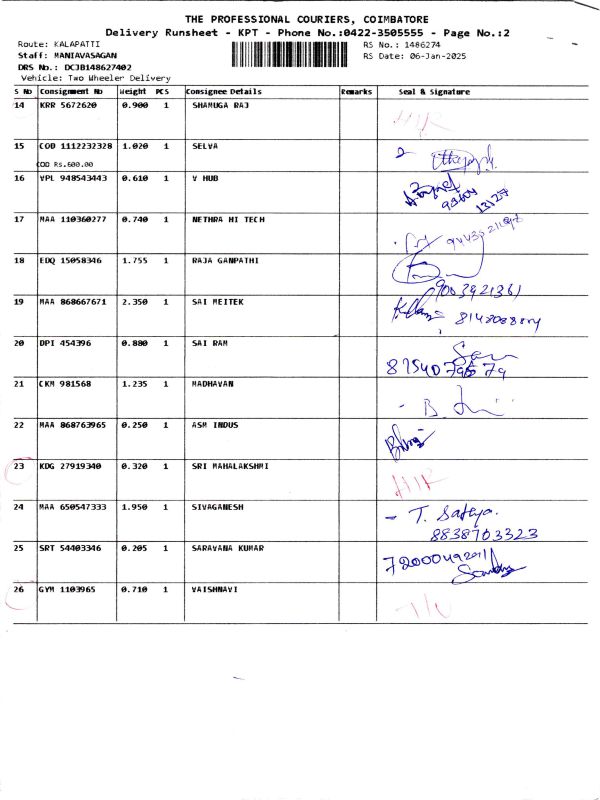 THE PROFESSIONAL COURIERS, COIMBATORE
Delivery Runsheet - KPT - Phone No.:0422-3505555 - Page No.:2
Route: KALAPATTI
RS No.: 1486274
Staff: MANIAVASAGAN
RS Date: 06-Jan-2025
DRS No.: DCJB148627402
Vehicle: Two Wheeler Delivery
S No Consignment No Weight PCS Consignee Details Remarks Seal & Signature
14 KRR 5672620 0.900 1 SHAMUGA RAJ
15 COD 1112232328 1.020 1 SELVA
COD Rs.600.00
16 VPL 948543443 0.610 1 V HUB
17 MAA 110360277 0.740 1 NETHRA HI TECH
18 EDQ 15058346 1.755 1 RAJA GANPATHI
9003921361
19 MAA 868667671 2.350 1 SAI MEITEK
20 DPI 454396 0.880 1 SAI RAM
21 CKM 981568 1.235 1 MADHAVAN
22 MAA 868763965 0.250 1 ASM INDUS
23 KDG 27919340 0.320 1 SRI MAHALAKSHMI
24 MAA 650547333 1.950 1 SIVAGANESH - T. Sathya.
8838703323
25 SRT 54403346 0.205 1 SARAVANA KUMAR
26 GYM 1103965 0.710 1 VAISHNAVI